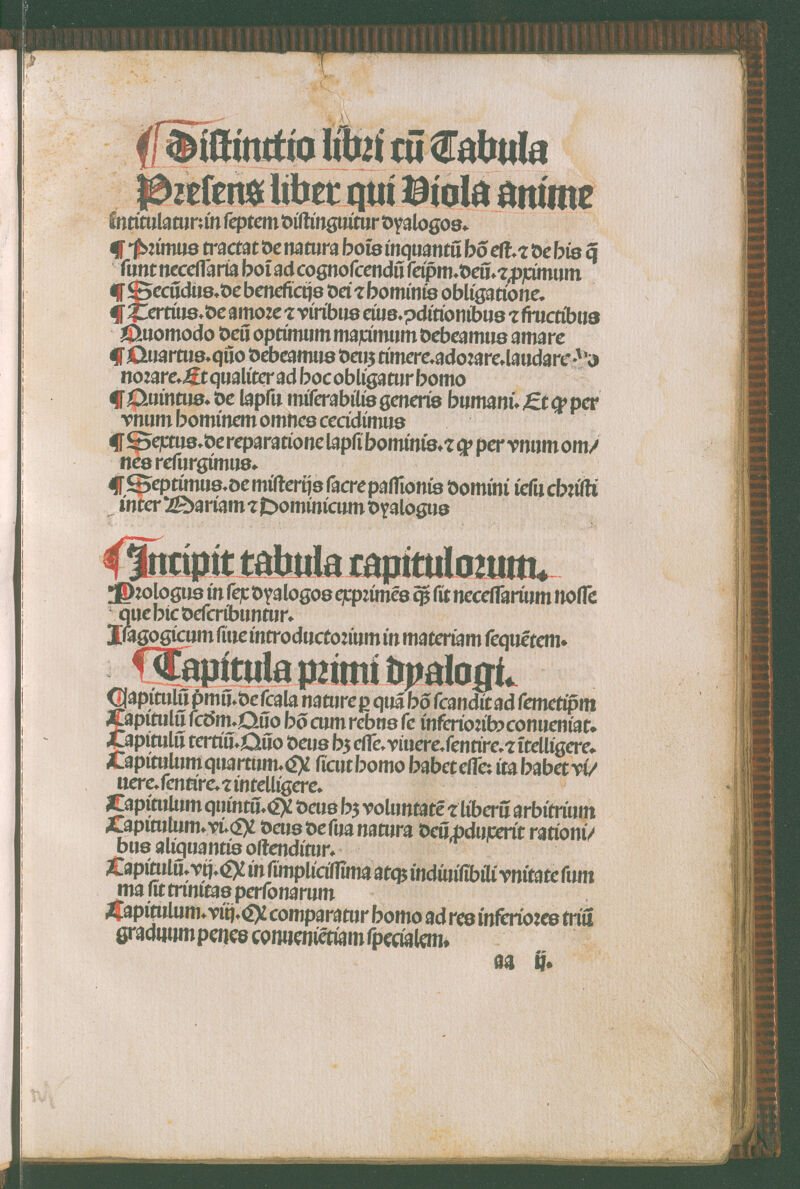 ¶ Distinctio libri cū Tabula
Presens liber qui Viola anime
Intitulatur: in septem distinguitur dyalogos.
¶ Primus tractat de natura hoīs inquantū hō est. ⁊ de his q̄
sunt necessaria hoī ad cognoscendū seip̄m. deū. ⁊ ꝓximum
¶ Secūdus. de beneficijs dei ⁊ hominis obligatione.
¶ Tertius. de amore ⁊ viribus eius. ꝯditionibus ⁊ fructibus
Quomodo deū optimum maximum debeamus amare
¶ Quartus. qūo debeamus deuȝ timere. adorare. laudare.
norare. Et qualiter ad hoc obligatur homo
¶ Quintus. de lapsu miserabilis generis humani. Et ꝙ per
vnum hominem omnes cecidimus
¶ Sextus. de reparatione lapsi hominis. ⁊ ꝙ per vnum om/
nes resurgimus.
¶ Septimus. de misterijs sacre passionis domini iesu christi
inter Mariam ⁊ Dominicum dyalogus
¶ Incipit tabula capitulorum.
Prologus in sex dyalogos exprimēs q̄ȝ sit necessarium nosse
que hic describuntur.
Isagogicum siue introductorium in materiam sequētem.
¶ Capitula primi dyalogi.
Capitulū p̄mū. de scala nature ꝑ quā hō scandit ad semetip̄m
Capitulū scd̄m. Qūo hō cum rebus se inferioribꝰ conueniat.
Capitulū tertiū. Qūo deus hȝ esse. viuere. sentire. ⁊ ītelligere.
Capitulum quartum. Ꝙ sicut homo habet esse: ita habet vi/
uere. sentire. ⁊ intelligere.
Capitulum quintū. Ꝙ deus hȝ voluntatē ⁊ liberū arbitrium
Capitulum. vi. Ꝙ deus de sua natura deū ꝓduxerit rationi/
bus aliquantis ostenditur.
Capitulū. vij. Ꝙ in simplicissima atqȝ indiuisibili vnitate sum
ma sit trinitas personarum
Capitulum. viij. Ꝙ comparatur homo ad res inferiores triū
graduum penes conueniētiam specialem.
aa ij.